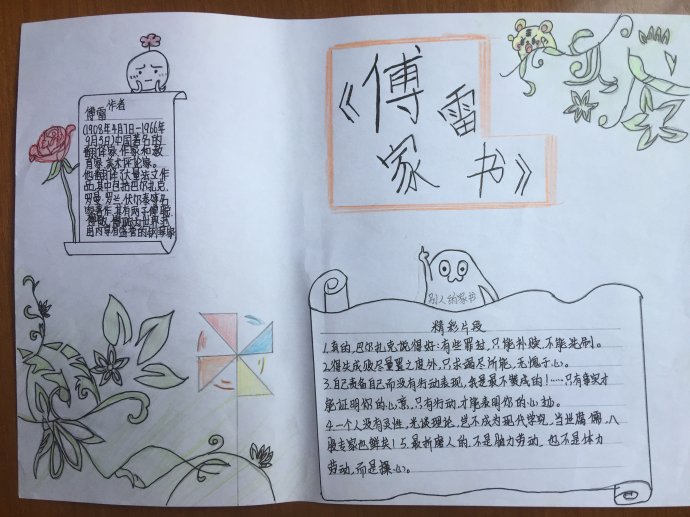 《傅雷
家书》
作者
傅雷
(1908年4月7日-1966年
9月3日)中国著名的
翻译家,作家和教
育家,美术评论家。
他翻译了大量法文作
品,其中包括巴尔扎克,
罗曼·罗兰,伏尔泰等名
家著作,其有两子傅聪,
别人的家书
精彩片段
1.真的,巴尔扎克说得好:有些罪过,只能补赎,不能洗刷。
2.得失成败尽量置之度外,只求竭尽所能,无愧于心。
3.自己责备自己而没有行动表现,我是最不赞成的!……只有事实才
能证明你的心意,只有行动,才能表明你的心迹。
4.一个人没有灵性,光谈理论,岂不成为现代学究,当世腐儒,八
股专家也鲜矣!5.最折磨人的,不是脑力劳动,也不是体力
劳动,而是操心。